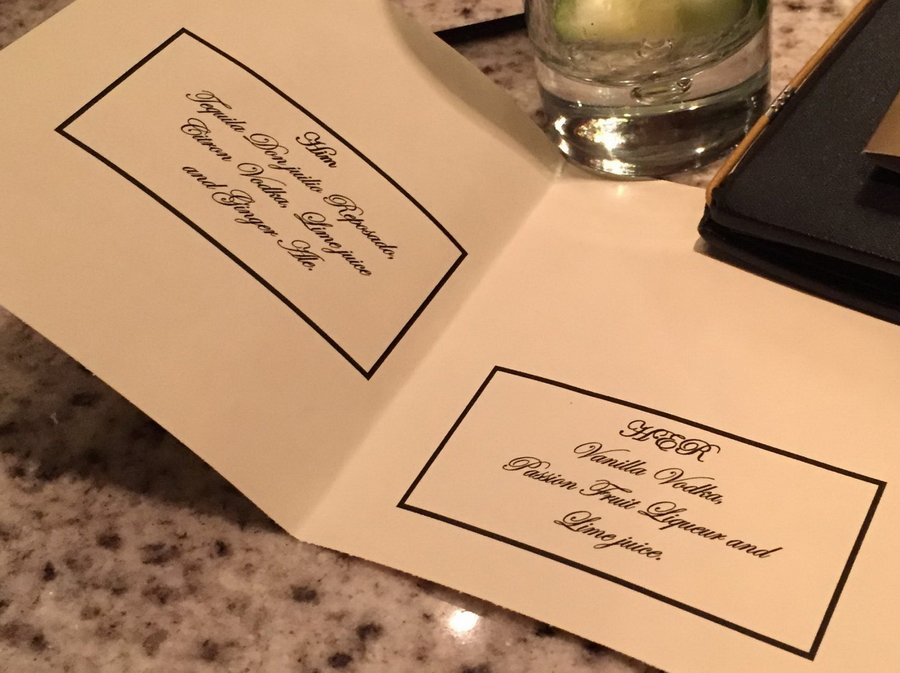 Him
Tequila Donjuilio Reposado,
Citron Vodka, Lime juice
and Ginger Ale.
HER
Vanilla Vodka,
Passion Fruit Liqueur and
Lime juice.